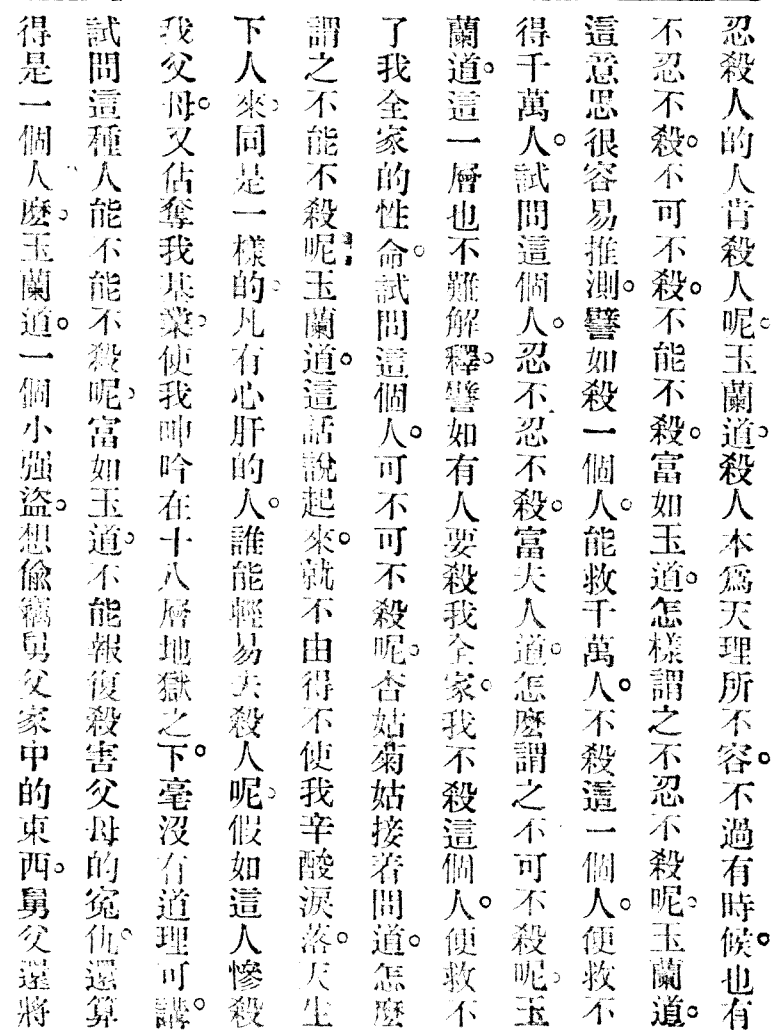 忍殺人的人肯殺人呢。玉蘭道。殺人本爲天理所不容。不過有時候。也有
不忍不殺。不可不殺。不能不殺。富如玉道。怎樣謂之不忍不殺呢。玉蘭道。
這意思很容易推測。譬如殺一個人。能救千萬人。不殺這一個人。便救不
得千萬人。試問這個人。忍不忍不殺。富夫人道。怎麼謂之不可不殺呢。玉
蘭道。這一層也不難解釋。譬如有人要殺我全家。我不殺這個人。便救不
了我全家的性命。試問這個人。可不可不殺呢。杏姑菊姑接着問道。怎麼
謂之不能不殺呢。玉蘭道。這話說起來。就不由得不使我辛酸淚落。天生
下人來。同是一樣的。凡有心肝的人。誰能輕易去殺人呢。假如這人慘殺
我父母。又佔奪我基業。使我呻吟在十八層地獄之下。毫沒有道理可講。
試問這種人能不能不殺呢。富如玉道。不能報復殺害父母的冤仇。還算
得是一個人麽。玉蘭道。一個小强盜。想偸竊舅父家中的東西。舅父還將